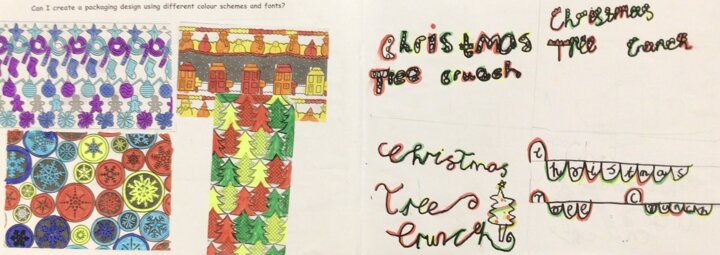 Can I create a packaging design using different colour schemes and fonts?
Christmas
Tree crunch
Christmas
Tree Crunch
Christmas
Tree
Crunch
christmas